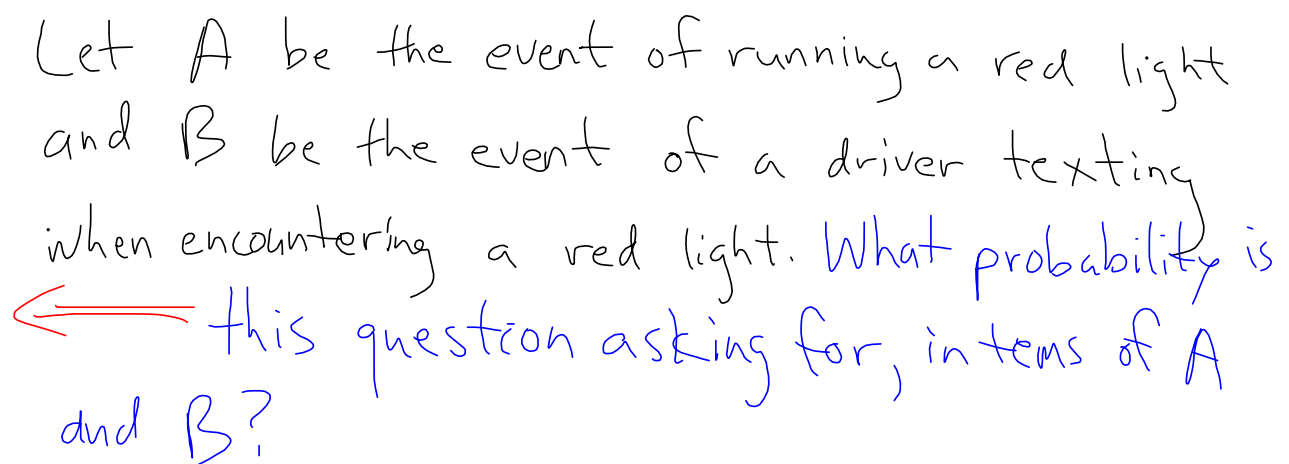 Let A be the event of running a red light
and B be the event of a driver texting
when encountering a red light. What probability is
this question asking for, in tems of A
and B?